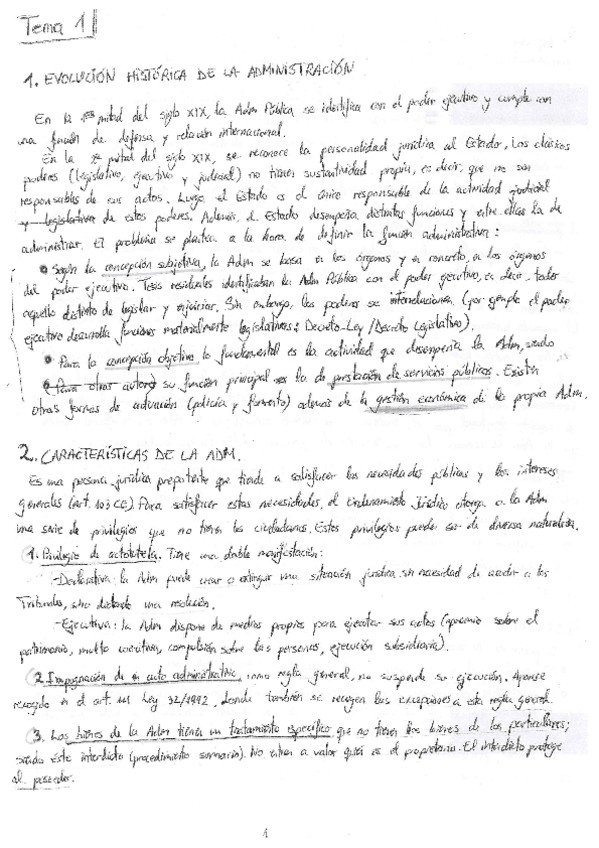 Tema 1
1. EVOLUCIÓN HISTÓRICA DE LA ADMINISTRACIÓN
En la 1ª mitad del siglo XIX, la Adm Pública se identifica con el poder ejecutivo y cumple con
una función de defensa y relación internacional.
En la 2ª mitad del siglo XIX, se reconoce la personalidad jurídica al Estado. Los clásicos
poderes (legislativo, ejecutivo y judicial) no tienen sustantividad propia, es decir, que no son
responsables de sus actos. Luego el Estado es el único responsable de la actividad judicial
y legislativa de estos poderes. Además, el Estado desempeña distintas funciones y entre ellas la de
administrar. El problema se plantea a la hora de definir la función administrativa:
• Según la concepción subjetiva, la Adm se basa en los órganos y en concreto, a los órganos
del poder ejecutivo. Tesis residuales identificaban la Adm Pública con el poder ejecutivo, es decir, todo
aquello distinto de legislar y enjuiciar. Sin embargo, los poderes se interrelacionan (por ejemplo el poder
ejecutivo desarrolla funciones materialmente legislativas: Decreto-Ley / Decreto Legislativo).
• Para la concepción objetiva lo fundamental es la actividad que desempeña la Adm, siendo
(Para otros autores) su función principal es la de prestación de servicios públicos. Existen
otras formas de actuación (policía y fomento) además de la gestión económica de la propia Adm.
2. CARACTERÍSTICAS DE LA ADM.
Es una persona jurídica prepotente que tiende a satisfacer las necesidades públicas y los intereses
generales (art. 103 CE). Para satisfacer estas necesidades, el Ordenamiento Jurídico otorga a la Adm
una serie de privilegios que no tienen los ciudadanos. Estos privilegios pueden ser de diversa naturaleza.
1. Privilegio de autotutela. Tiene una doble manifestación:
-Declarativa: la Adm puede crear o extinguir una situación jurídica sin necesidad de acudir a los
Tribunales, sino dictando una resolución.
-Ejecutiva: la Adm dispone de medios propios para ejecutar sus actos (apremio sobre el
patrimonio, multa coercitiva, compulsión sobre las personas, ejecución subsidiaria).
2. Impugnación de un acto administrativo, como regla general, no suspende su ejecución. Aparece
recogido en el art. 111 Ley 30/1992, donde también se recogen las excepciones a esta regla general.
3. Los bienes de la Adm tienen un tratamiento específico que no tienen los bienes de los particulares;
siendo éste interdicto (procedimiento sumario). No entran a valorar quién es el propietario. El interdicto protege
al poseedor.
1